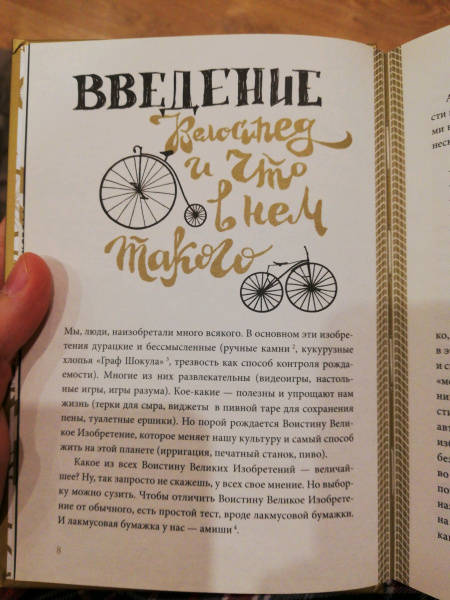 ВВЕДЕНИЕ
Велосипед
и что
в нем
такого
Мы, люди, наизобретали много всякого. В основном эти изобре-
тения дурацкие и бессмысленные (ручные камни ², кукурузные
хлопья «Граф Шокула» ³, трезвость как способ контроля рожда-
емости). Многие из них развлекательны (видеоигры, настоль-
ные игры, игры разума). Кое-какие — полезны и упрощают нам
жизнь (терки для сыра, виджеты в пивной таре для сохранения
пены, туалетные ершики). Но порой рождается Воистину Вели-
кое Изобретение, которое меняет нашу культуру и самый способ
жить на этой планете (ирригация, печатный станок, пиво).
Какое из всех Воистину Великих Изобретений — величай-
шее? Ну, так запросто не скажешь, у всех свое мнение. Но выбор-
ку можно сузить. Чтобы отличить Воистину Великое Изобрете-
ние от обычного, есть простой тест, вроде лакмусовой бумажки.
И лакмусовая бумажка у нас — амиши ⁴.
8